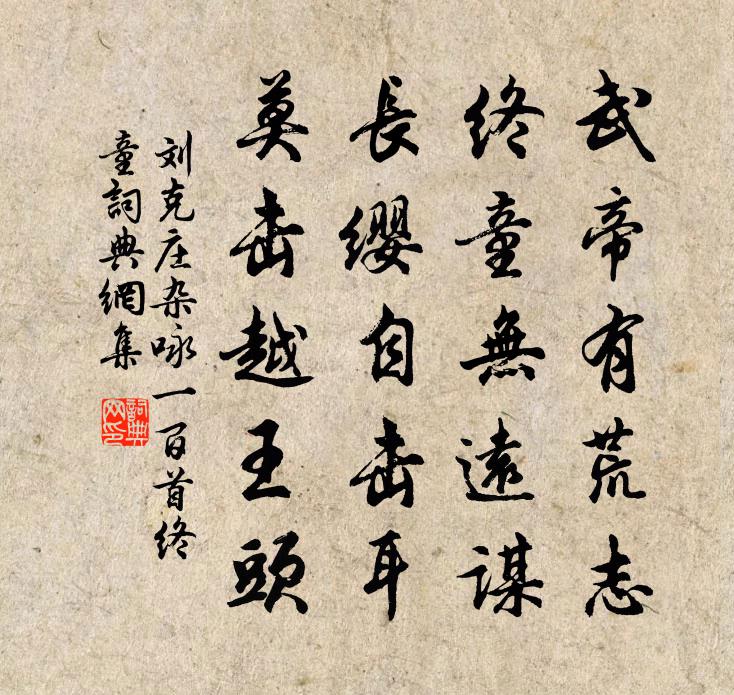 武帝有荒志
終童無遠謀
長缨自击耳
莫击越王頭
刘克庄杂咏一百首终
童詞典網集
詞典网印